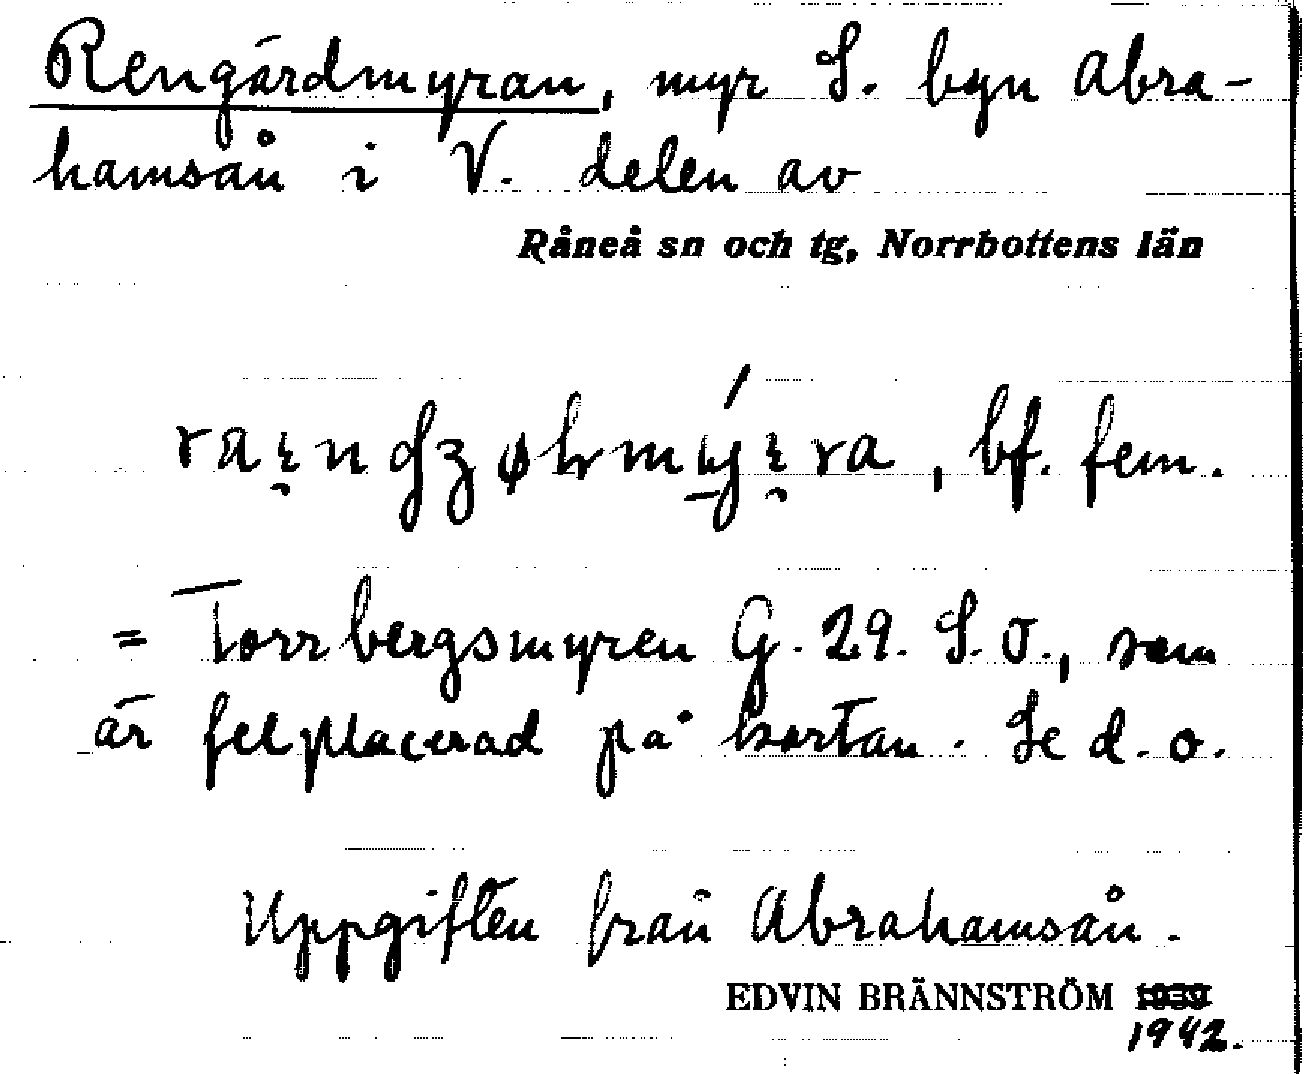 Rengårdmyran, myr S. byn Abra-
hamsån i V. delen av
Råneå sn och tg, Norrbottens län
, bf. fem.
= Torrbergsmyren G. 29. S.O., som
är felplacerad på kartan. Se d. o.
Uppgiften från Abrahamsån.
EDVIN BRÄNNSTRÖM 1939
1942.